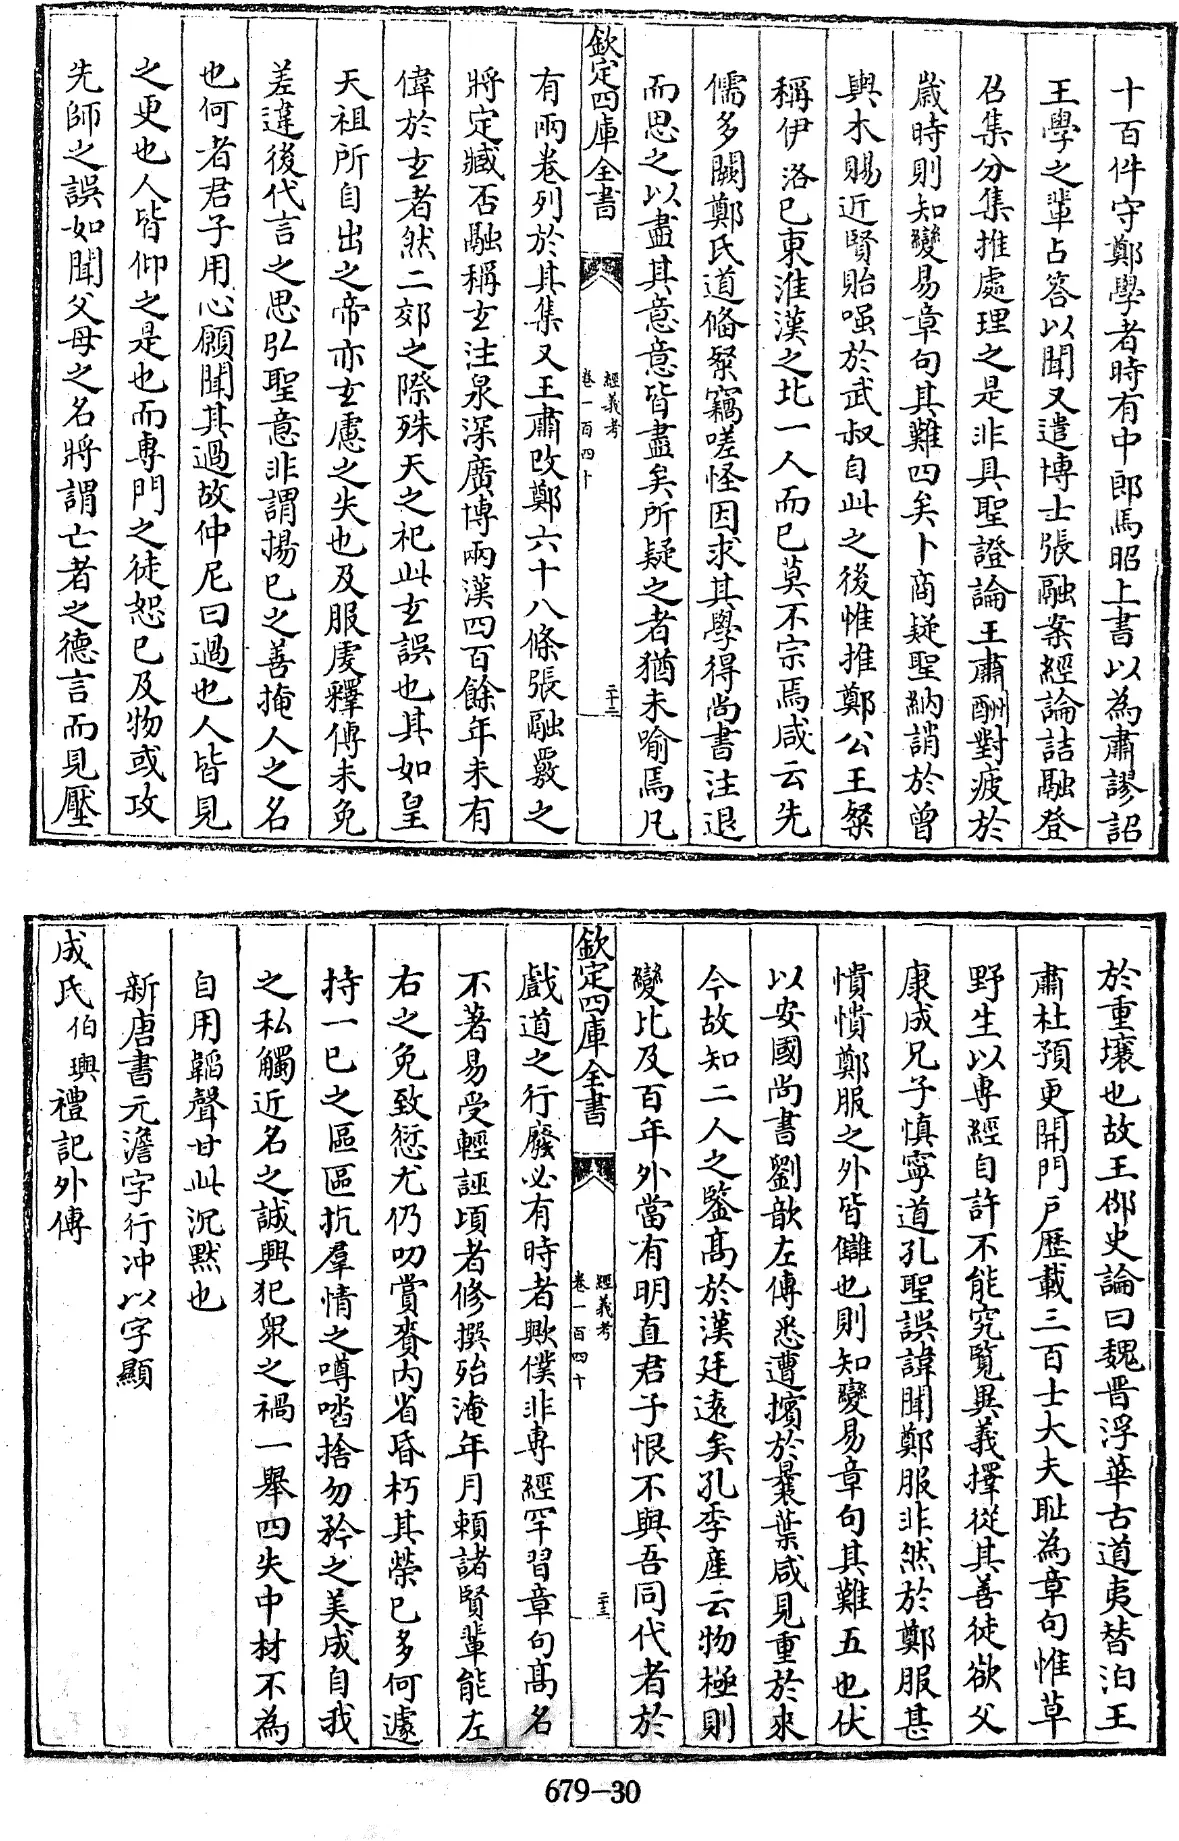 十百件守鄭學者時有中郎馬昭上書以為肅謬詔
王學之輩占答以聞又遣博士張融案經論詰融登
召集分集推處理之是非具聖證論王肅酬對疲於
嵗時則知變易章句其難四矣卜商疑聖納誚於曾
輿木賜近賢貽嗤於武叔自此之後惟推鄭公王粲
稱伊洛已東淮漢之北一人而已莫不宗焉咸云先
儒多闕鄭氏道偹粲竊嗟怪因求其學得尚書注退
而思之以盡其意意皆盡矣所疑之者猶未喻焉凡
欽定四庫全書
經義考
卷一百四十
二十二
有兩卷列於其集又王肅改鄭六十八條張融覈之
將定臧否融稱玄注泉深廣博兩漢四百餘年未有
偉於玄者然二郊之際殊天之祀此玄誤也其如皇
天祖所自出之帝亦玄慮之失也及服䖍釋傳未免
差違後代言之思弘聖意非謂揚已之善掩人之名
也何者君子用心願聞其過故仲尼曰過也人皆見
之更也人皆仰之是也而專門之徒恕已及物或攻
先師之誤如聞父母之名將謂亡者之德言而見壓
於重壤也故王邵史論曰魏晉浮華古道夷替洎王
肅杜預更開門户歴載三百士大夫耻為章句惟草
野生以專經自許不能究覧異義擇從其善徒欲父
康成兄子慎寧道孔聖誤諱聞鄭服非然於鄭服甚
憒憒鄭服之外皆讎也則知變易章句其難五也伏
以安國尚書劉歆左傳悉遭擯於曩葉咸見重於來
今故知二人之鑒髙於漢廷逺矣孔季産云物極則
變比及百年外當有明直君子恨不與吾同代者於
欽定四庫全書
經義考
卷一百四十
二十三
戲道之行廢必有時者歟僕非專經罕習章句髙名
不著易受輕誣頃者修撰殆淹年月賴諸賢輩能左
右之免致愆尤仍叨賞賚内省昏朽其榮已多何遽
持一已之區區抗羣情之噂㗳捨勿矜之美成自我
之私觸近名之誡興犯衆之禍一舉四失中材不為
自用韜聲甘此沉黙也
新唐書元澹字行冲以字顯
成氏伯璵禮記外傳
679-30